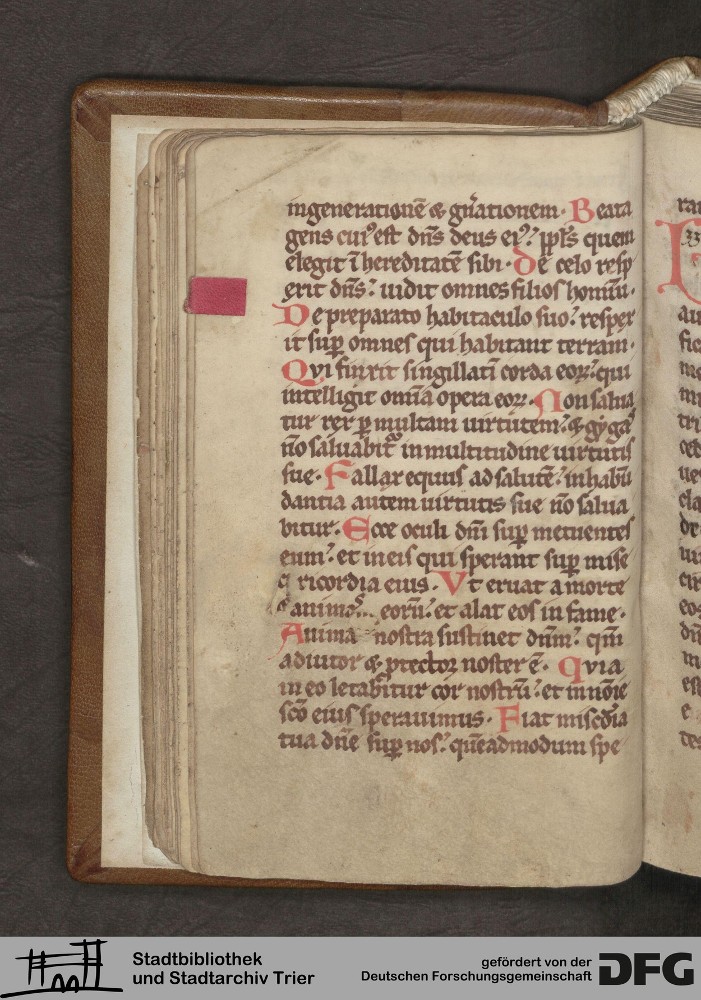 ingeneratione̅ & gn̅ationem· Beata
gens cuiꝰ est dn̅s deus eiꝰ: ppl̅s quem
elegit i̅ hereditate̅ sibi· De celo resp
exit dn̅s: uidit omnes filios hominu̅·
De preparato habitaculo suo: respex
it sup̲ omnes qui habitant terram·
Qvi finxit singillati̅ corda eoꝝ: qui
intelligit om̅ia opera eoꝝ· Non salua
tur rex ꝑ multam uirtutem: & gygas
no̅ saluabit᷑ in multitudine uirtutis
sue· Fallax equus ad salute̅: in habu̅
dantia autem uirtutis sue no̅ salua
bitur· Ecce oculi dn̅i sup̲ metuentes
eum: et in eis qui sperant sup̲ mise
ricordia eius· Vt eruat a morte
animas eoru̅: et alat eos in fame·
Anima nostra sustinet dn̅m: qm̅
adiutor & ptector noster e̅· Qvia
in eo letabitur cor nostru̅: et in no̅ie
sc̅o eius sperauimus· Fiat misc̅dia
tua dn̅e sup̲ nos: que̅admodum spe
ra
au
Stadtbibliothek
und Stadtarchiv Trier
gefördert von der
Deutschen Forschungsgemeinschaft
DFG